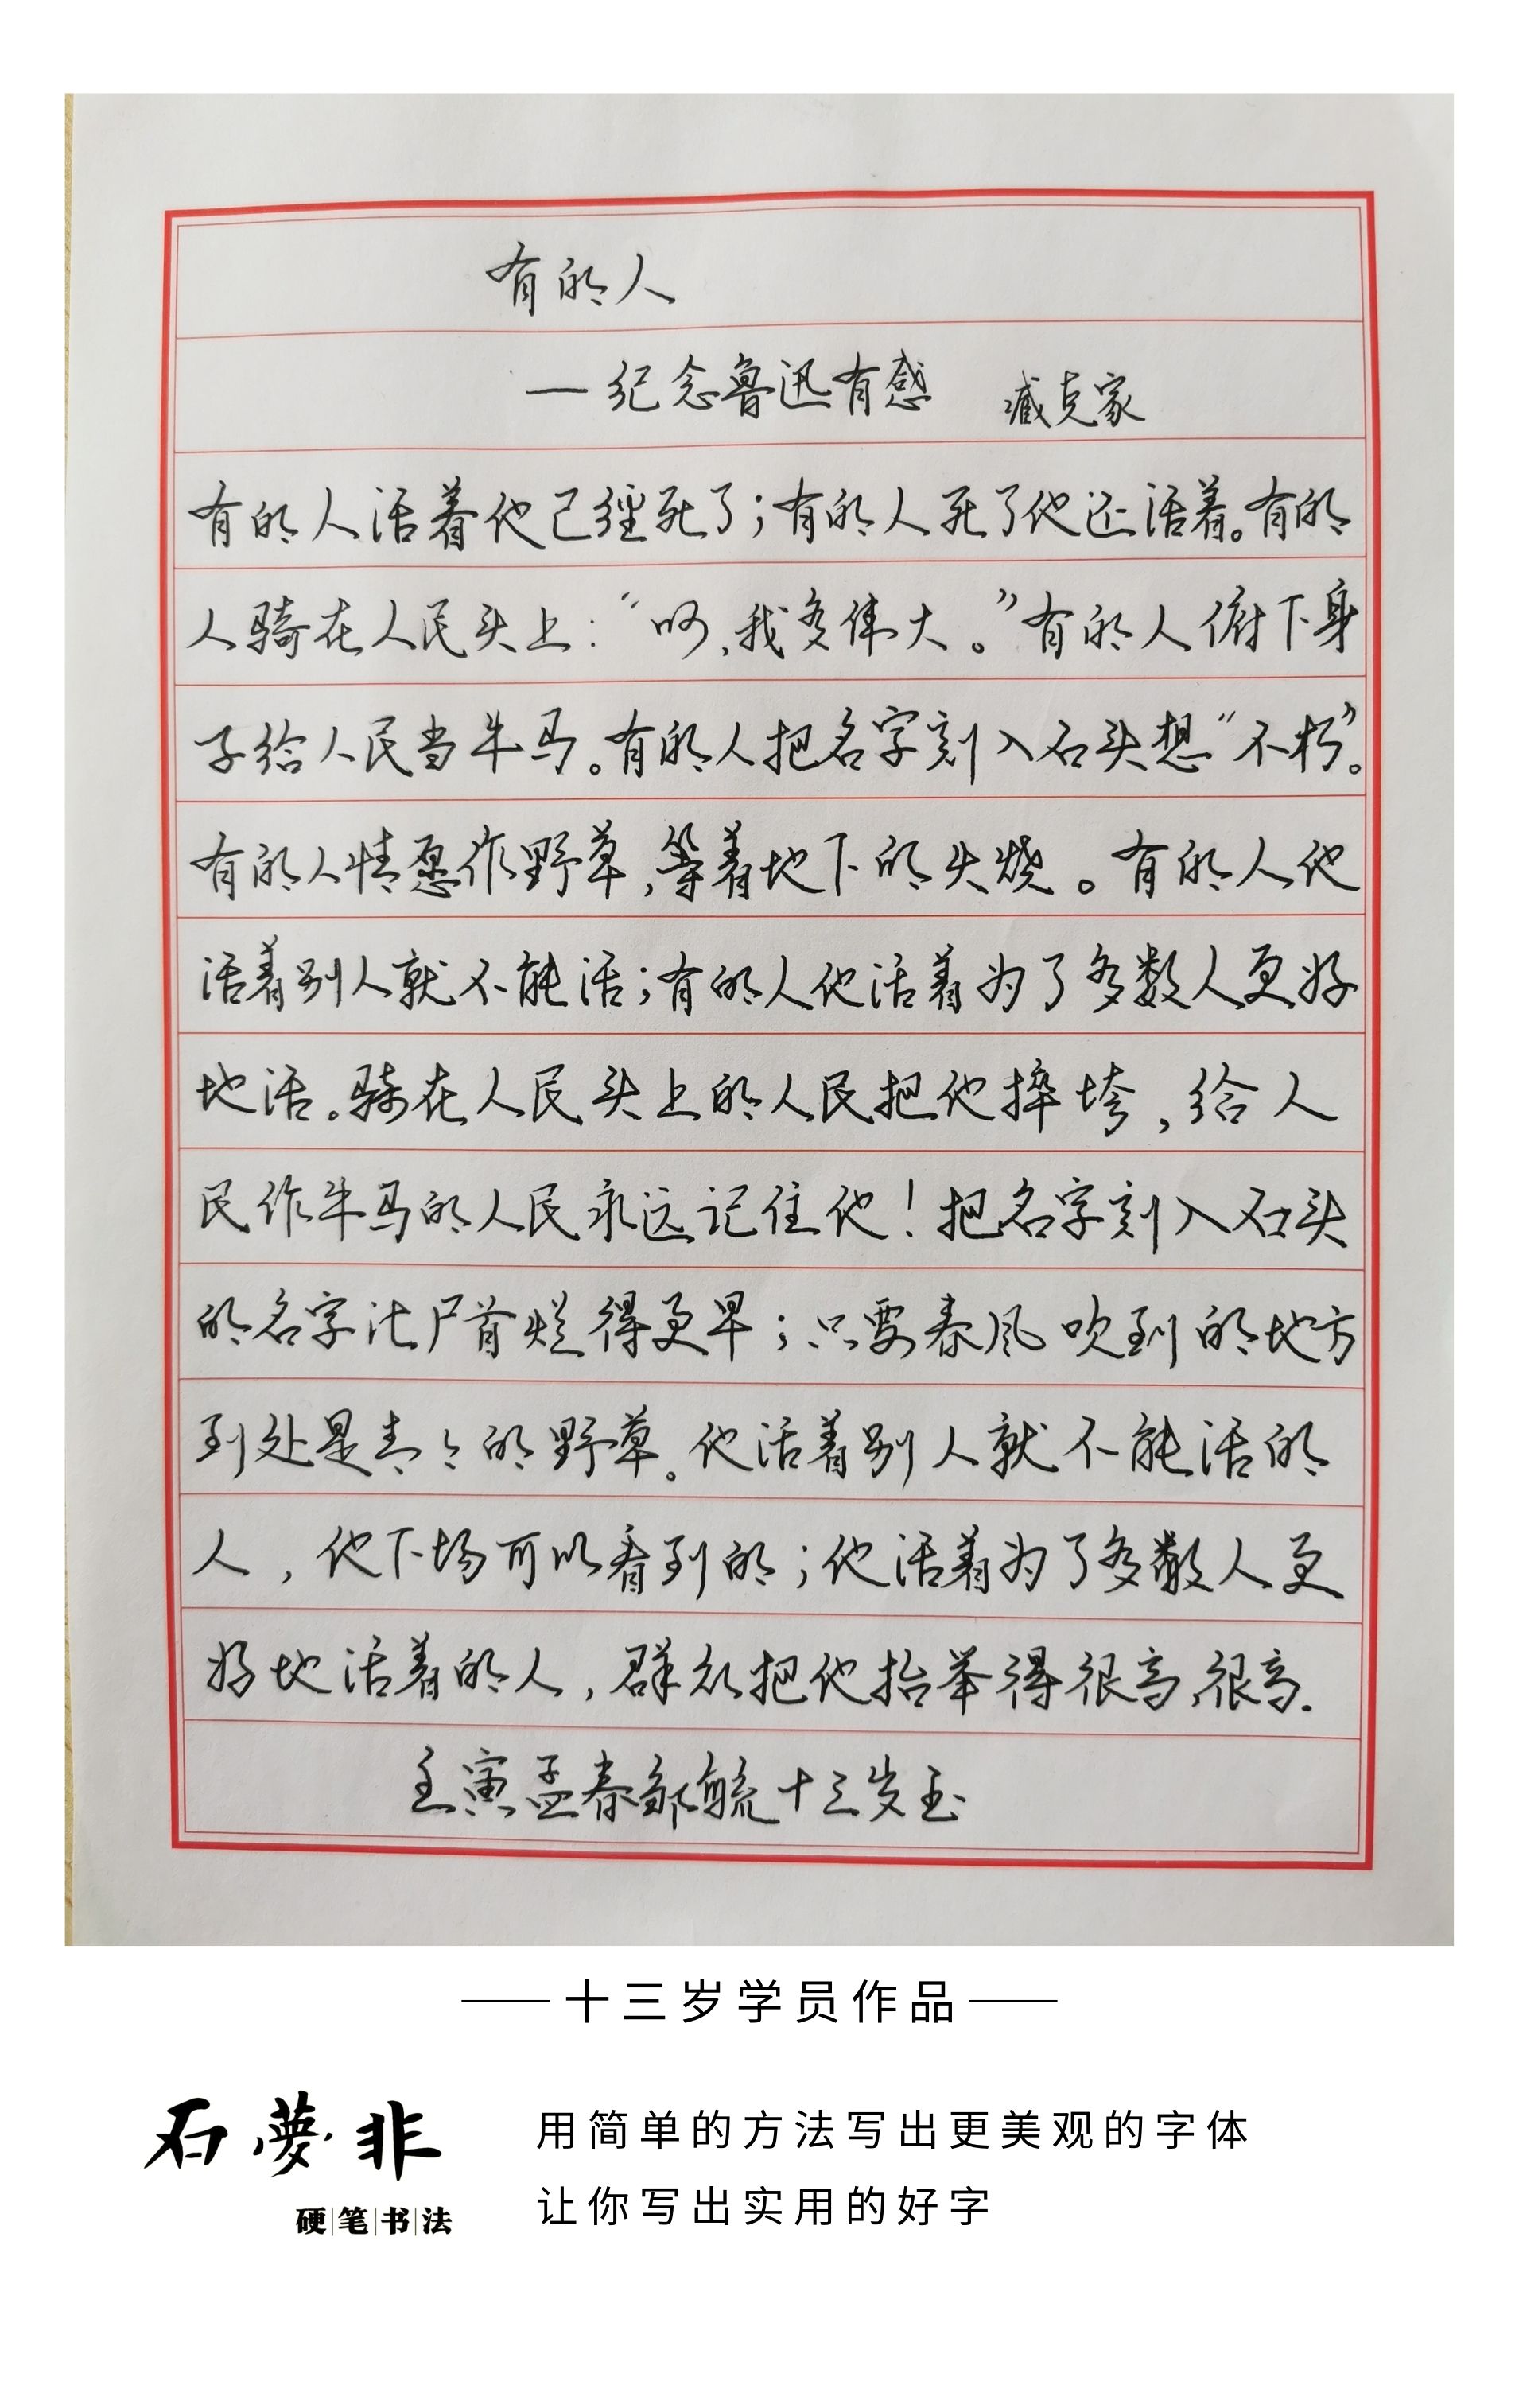 有的人
—纪念鲁迅有感 臧克家
有的人活着他已经死了；有的人死了他还活着。有的
人骑在人民头上：“呵，我多伟大。”有的人俯下身
子给人民当牛马。有的人把名字刻入石头想“不朽”。
有的人情愿作野草，等着地下的火烧。有的人他
活着别人就不能活；有的人他活着为了多数人更好
地活。骑在人民头上的人民把他摔垮，给人
民作牛马的人民永远记住他！把名字刻入石头
的名字比尸首烂得更早；只要春风吹到的地方
到处是青々的野草。他活着别人就不能活的
人，他下场可以看到的；他活着为了多数人更
好地活着的人，群众把他抬举得很高，很高.
壬寅孟春邹毓十三岁书
十三岁学员作品
石夢非
硬笔书法
用简单的方法写出更美观的字体
让你写出实用的好字